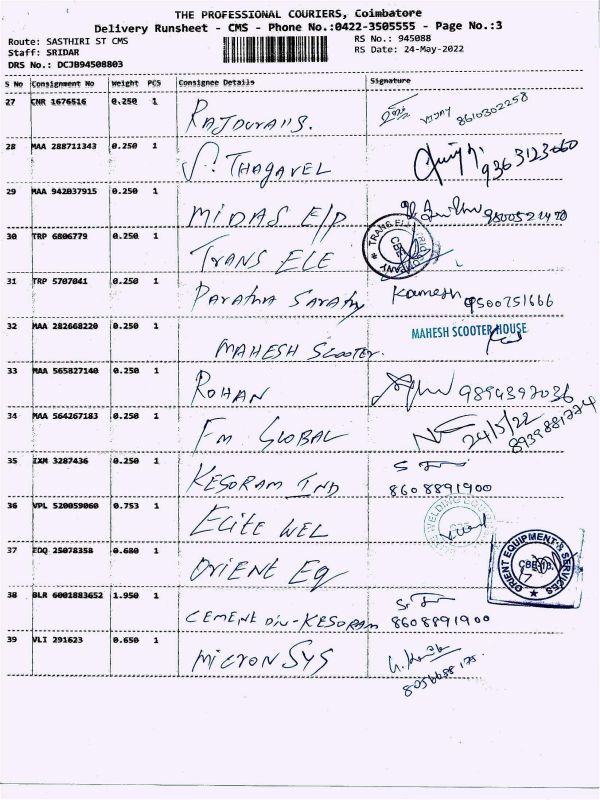 THE PROFESSIONAL COURIERS, Coimbatore
Delivery Runsheet - CMS - Phone No.:0422-3505555 - Page No.:3
Route: SASTHIRI ST CMS RS No.: 945088
Staff: SRIDAR RS Date: 24-May-2022
DRS No.: DCJB94508803
S No Consignment No Weight PCS Consignee Details Signature
27 CNR 1676516 0.250 1 VIJAY 8610302258
28 MAA 288711343 0.250 1 THAGAVEL
29 MAA 942037915 0.250 1 MIDAS E/P
30 TRP 6806779 0.250 1 TRANS ELE
31 TRP 5707041 0.250 1 Paratha Sarathy Kamesh 9500751666
32 MAA 282668220 0.250 1 MAHESH SCOOTER. MAHESH SCOOTER HOUSE
33 MAA 565827140 0.250 1 ROHAN 9894397036
34 MAA 564267183 0.250 1 Fm GLOBAL 24/5/22
35 IXM 3287436 0.250 1 KESORAM IND 8608891900
36 VPL 520059060 0.753 1 ELITE WEL
37 EDQ 25078358 0.680 1 ORIENT EQ ORIENT EQUIPMENT & SERVICES
38 BLR 6001883652 1.950 1 CEMENT DIV-KESORAM 8608891900
39 VLI 291623 0.650 1 MICRON SYS